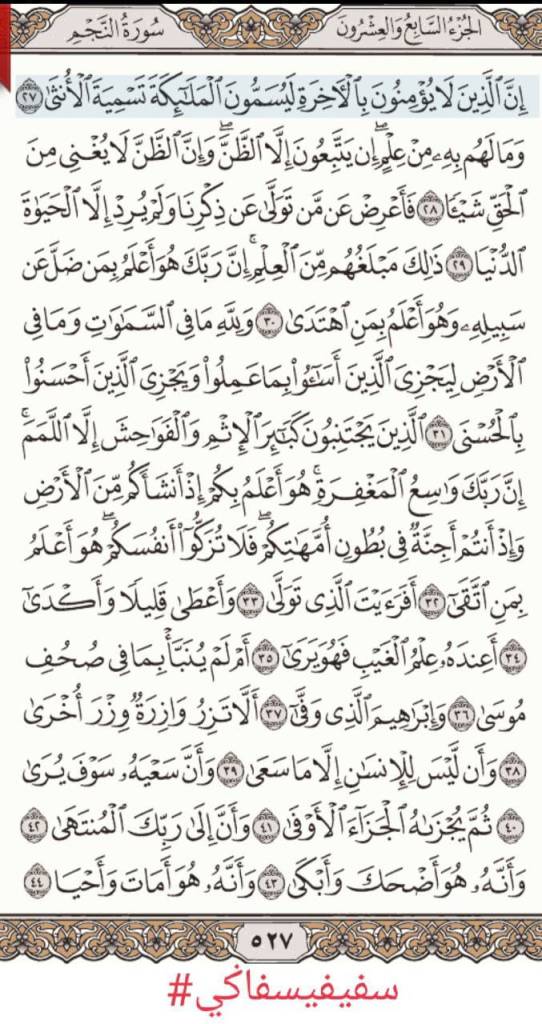 الجزء السابع والعشرون سورة النجم
إِنَّ ٱلَّذِينَ لَا يُؤْمِنُونَ بِٱلْأَخِرَةِ لَيُسَمُّونَ ٱلْمَلَٰٓئِكَةَ تَسْمِيَةَ ٱلْأُنثَىٰ ٢٧
وَمَا لَهُم بِهِۦ مِنْ عِلْمٍ ۖ إِن يَتَّبِعُونَ إِلَّا ٱلظَّنَّ ۖ وَإِنَّ ٱلظَّنَّ لَا يُغْنِى مِنَ
ٱلْحَقِّ شَيْـًٔا ٢٨ فَأَعْرِضْ عَن مَّن تَوَلَّىٰ عَن ذِكْرِنَا وَلَمْ يُرِدْ إِلَّا ٱلْحَيَوٰةَ
ٱلدُّنْيَا ٢٩ ذَٰلِكَ مَبْلَغُهُم مِّنَ ٱلْعِلْمِ ۚ إِنَّ رَبَّكَ هُوَ أَعْلَمُ بِمَن ضَلَّ عَن
سَبِيلِهِۦ وَهُوَ أَعْلَمُ بِمَنِ ٱهْتَدَىٰ ٣٠ وَلِلَّهِ مَا فِى ٱلسَّمَٰوَٰتِ وَمَا فِى
ٱلْأَرْضِ لِيَجْزِىَ ٱلَّذِينَ أَسَٰٓـُٔوا۟ بِمَا عَمِلُوا۟ وَيَجْزِىَ ٱلَّذِينَ أَحْسَنُوا۟
بِٱلْحُسْنَى ٣١ ٱلَّذِينَ يَجْتَنِبُونَ كَبَٰٓئِرَ ٱلْإِثْمِ وَٱلْفَوَٰحِشَ إِلَّا ٱللَّمَمَ ۚ
إِنَّ رَبَّكَ وَٰسِعُ ٱلْمَغْفِرَةِ ۚ هُوَ أَعْلَمُ بِكُمْ إِذْ أَنشَأَكُم مِّنَ ٱلْأَرْضِ
وَإِذْ أَنتُمْ أَجِنَّةٌ فِى بُطُونِ أُمَّهَٰتِكُمْ ۖ فَلَا تُزَكُّوٓا۟ أَنفُسَكُمْ ۖ هُوَ أَعْلَمُ
بِمَنِ ٱتَّقَىٰٓ ٣٢ أَفَرَءَيْتَ ٱلَّذِى تَوَلَّىٰ ٣٣ وَأَعْطَىٰ قَلِيلًا وَأَكْدَىٰٓ
٣٤ أَعِندَهُۥ عِلْمُ ٱلْغَيْبِ فَهُوَ يَرَىٰٓ ٣٥ أَمْ لَمْ يُنَبَّأْ بِمَا فِى صُحُفِ
مُوسَىٰ ٣٦ وَإِبْرَٰهِيمَ ٱلَّذِى وَفَّىٰٓ ٣٧ أَلَّا تَزِرُ وَازِرَةٌ وِزْرَ أُخْرَىٰ
٣٨ وَأَن لَّيْسَ لِلْإِنسَٰنِ إِلَّا مَا سَعَىٰ ٣٩ وَأَنَّ سَعْيَهُۥ سَوْفَ يُرَىٰ
٤٠ ثُمَّ يُجْزَىٰهُ ٱلْجَزَآءَ ٱلْأَوْفَىٰ ٤١ وَأَنَّ إِلَىٰ رَبِّكَ ٱلْمُنتَهَىٰ ٤٢
وَأَنَّهُۥ هُوَ أَضْحَكَ وَأَبْكَىٰ ٤٣ وَأَنَّهُۥ هُوَ أَمَاتَ وَأَحْيَا ٤٤
٥٢٧
سفيفيسفاكي#